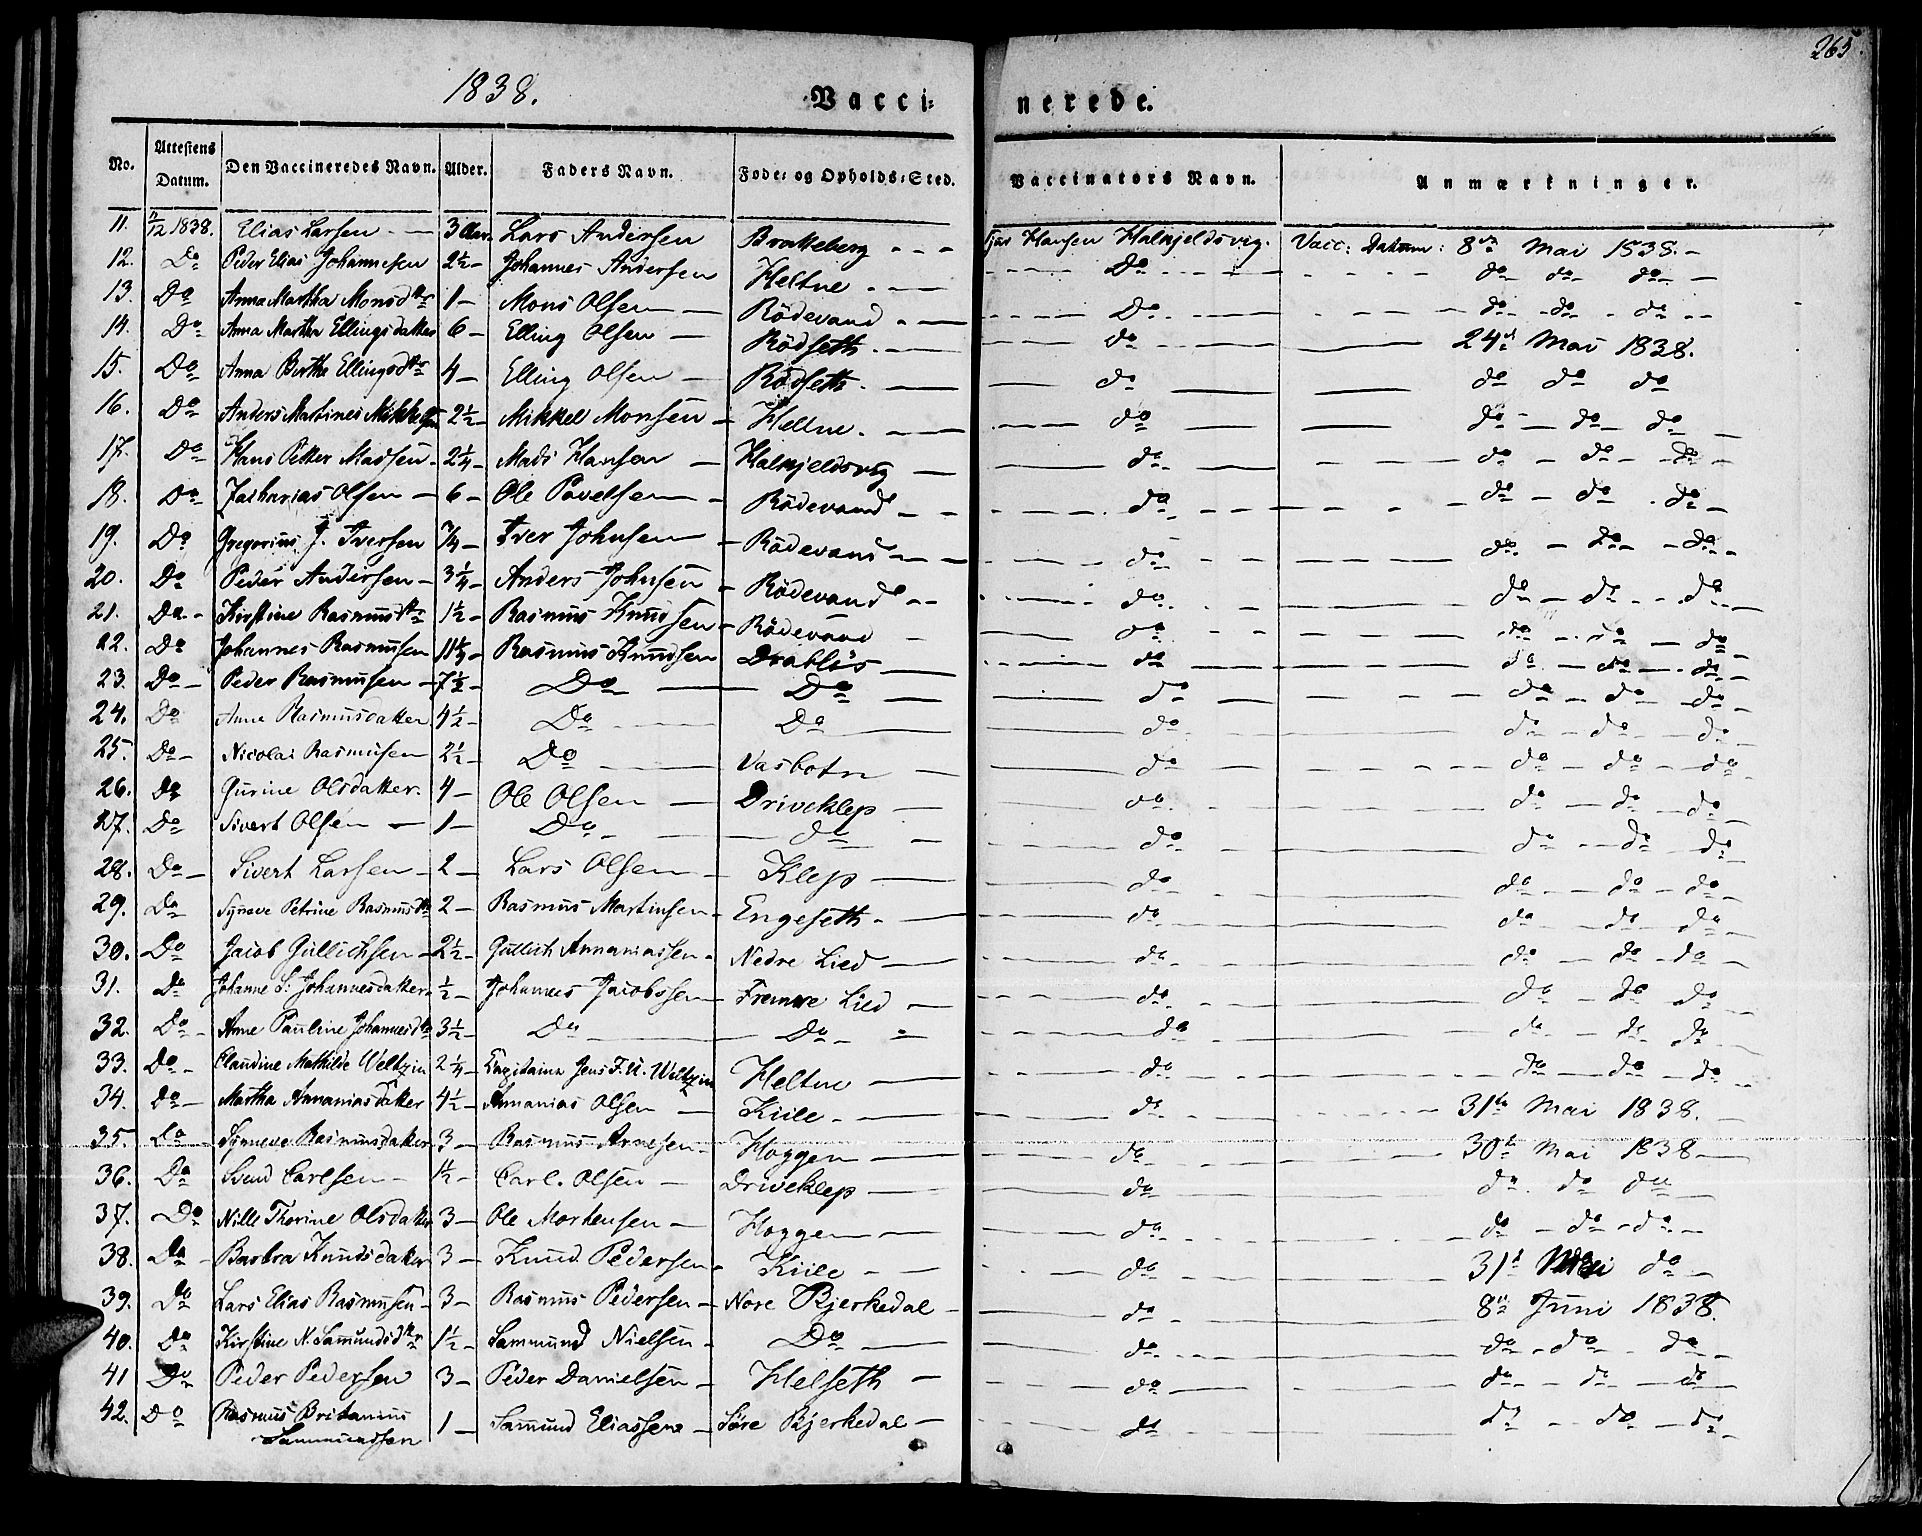 265.
1838.
Vacci= nerede.
No. Attestens Datum. Den Vaccineredes Navn. Alder. Faders Navn. Føde= og Opholds=Sted. Vaccinators Navn. Anmærkninger.
11. 11/12 1838. Elias Larsen - - 3 Aar. Lars Andersen Brakkeberg - - - Hansen Halkjeldsvig. Vacc: Datum: 8de Mai 1838. -
12. Do Peder Elias Johannesen 2½ - Johannes Andersen Heltne - - - Do - - - do do do -
13. Do Anna Martha Monsdtr 1 - Mons Olsen - Rödevand - - Do - - - do - do - do - -
14. Do Anna Martha Ellingsdatter 6 - Elling Olsen - Rödseth - - do - 24de Mai 1838.
15. Do Anna Berthe Ellingsdtr 4 - Elling Olsen - Rödseth. - do - do do do
16. Do Anders Martines Mikkelsen 2½ - Mikkel Monsen - Heltne. - - do - do - do - do -
17. Do Hans Petter Madsen - 2¼ - Mads Hansen - Halkjeldsvig - do - do - do - do -
18. Do Zacharias Olsen - 6 - Ole Povelsen - Rödevand - - do - do - do - do -
19. Do Gregorius J. Iversen ¾ - Iver Johnsen - Rödevand - - do - do - do - do -
20. Do Peder Andersen - 3¼ - Anders Johnsen - Rödevand - - do - do - do - do -
21. Do - Kirstine Rasmusdtr 1½ - Rasmus Knudsen - Rödevand - do - do - do - do -
22. Do Johannes Rasmusen 11¼ - Rasmus Knudsen Drabløs - do - do - do - do -
23. Do - Peder Rasmusen - 7½ - Do - Do - do - do - do - do -
24. Do Anne Rasmusdatter 4½ - Do - Do - do - do - do - do -
25. Do - Nicolai Rasmusen 2½ - Do - Vasbotn - do - do - do - do -
26. Do Gurine Olsdatter. 4 - Ole Olsen - Driveklep - do - do - do - do -
27. Do Sivert Olsen - 1 - Do - do - do - do - do - do -
28. Do - Sivert Larsen - 2 - Lars Olsen - Klep - do - do - do - do -
29. Do Synneve Petrine Rasmusdtr 2 - Rasmus Martinsen - Engeseth - do - do - do - do -
30. Do Jacob Gullichsen - 2½ - Gullich Annaniassen - Nedre Lied - do - do - do - do -
31. Do Johanne S: Johannesdatter ½ - Johannes Jacobssen - Fremre Lied - do - do - do - do -
32. Do - Anne Pauline Johannesdtr 3½ - Do - Do - do - do - do - do -
33. Do - Claudine Mathilde Weltzin 2¼ - Capitaine Jens F. U. Weltzin Heltne - do - do - do - do -
34. Do - Martha Annaniasdatter 4½ - Annanias Olsen - Kiile - do - 31te Mai 1838. -
35. Do - Synneve Rasmusdatter 3 - Rasmus Arnesen - Hoggen - do - 30te Mai 1838 -
36. Do Svend Carlsen - 1½ - Carl. Olsen - Driveklep - do - do. do do -
37. Do Nille Thorine Olsdatter 3 - Ole Mortensen - Hoggen - do - do - do - do -
38. Do - Barbra Knudsdatter 3 - Knud Pedersen - Kiile - do - 31te Mai do -
39. Do Lars Elias Rasmusen - 3 - Rasmus Pedersen - Nore Bjerkedal - do - 8de Juni 1838.
40. Do Kirstine N. Samundsdtr 1½ - Sammund Nielsen - Do - do - do - do - do -
41 Do Peder Pedersen 3 - Peder Danielsen - Helseth - do - do - do - do
42. Do Rasmus Britanius 1 - Samund Eliassen - Søre Bjerkedal - do - do - do - do -
Sammundssen